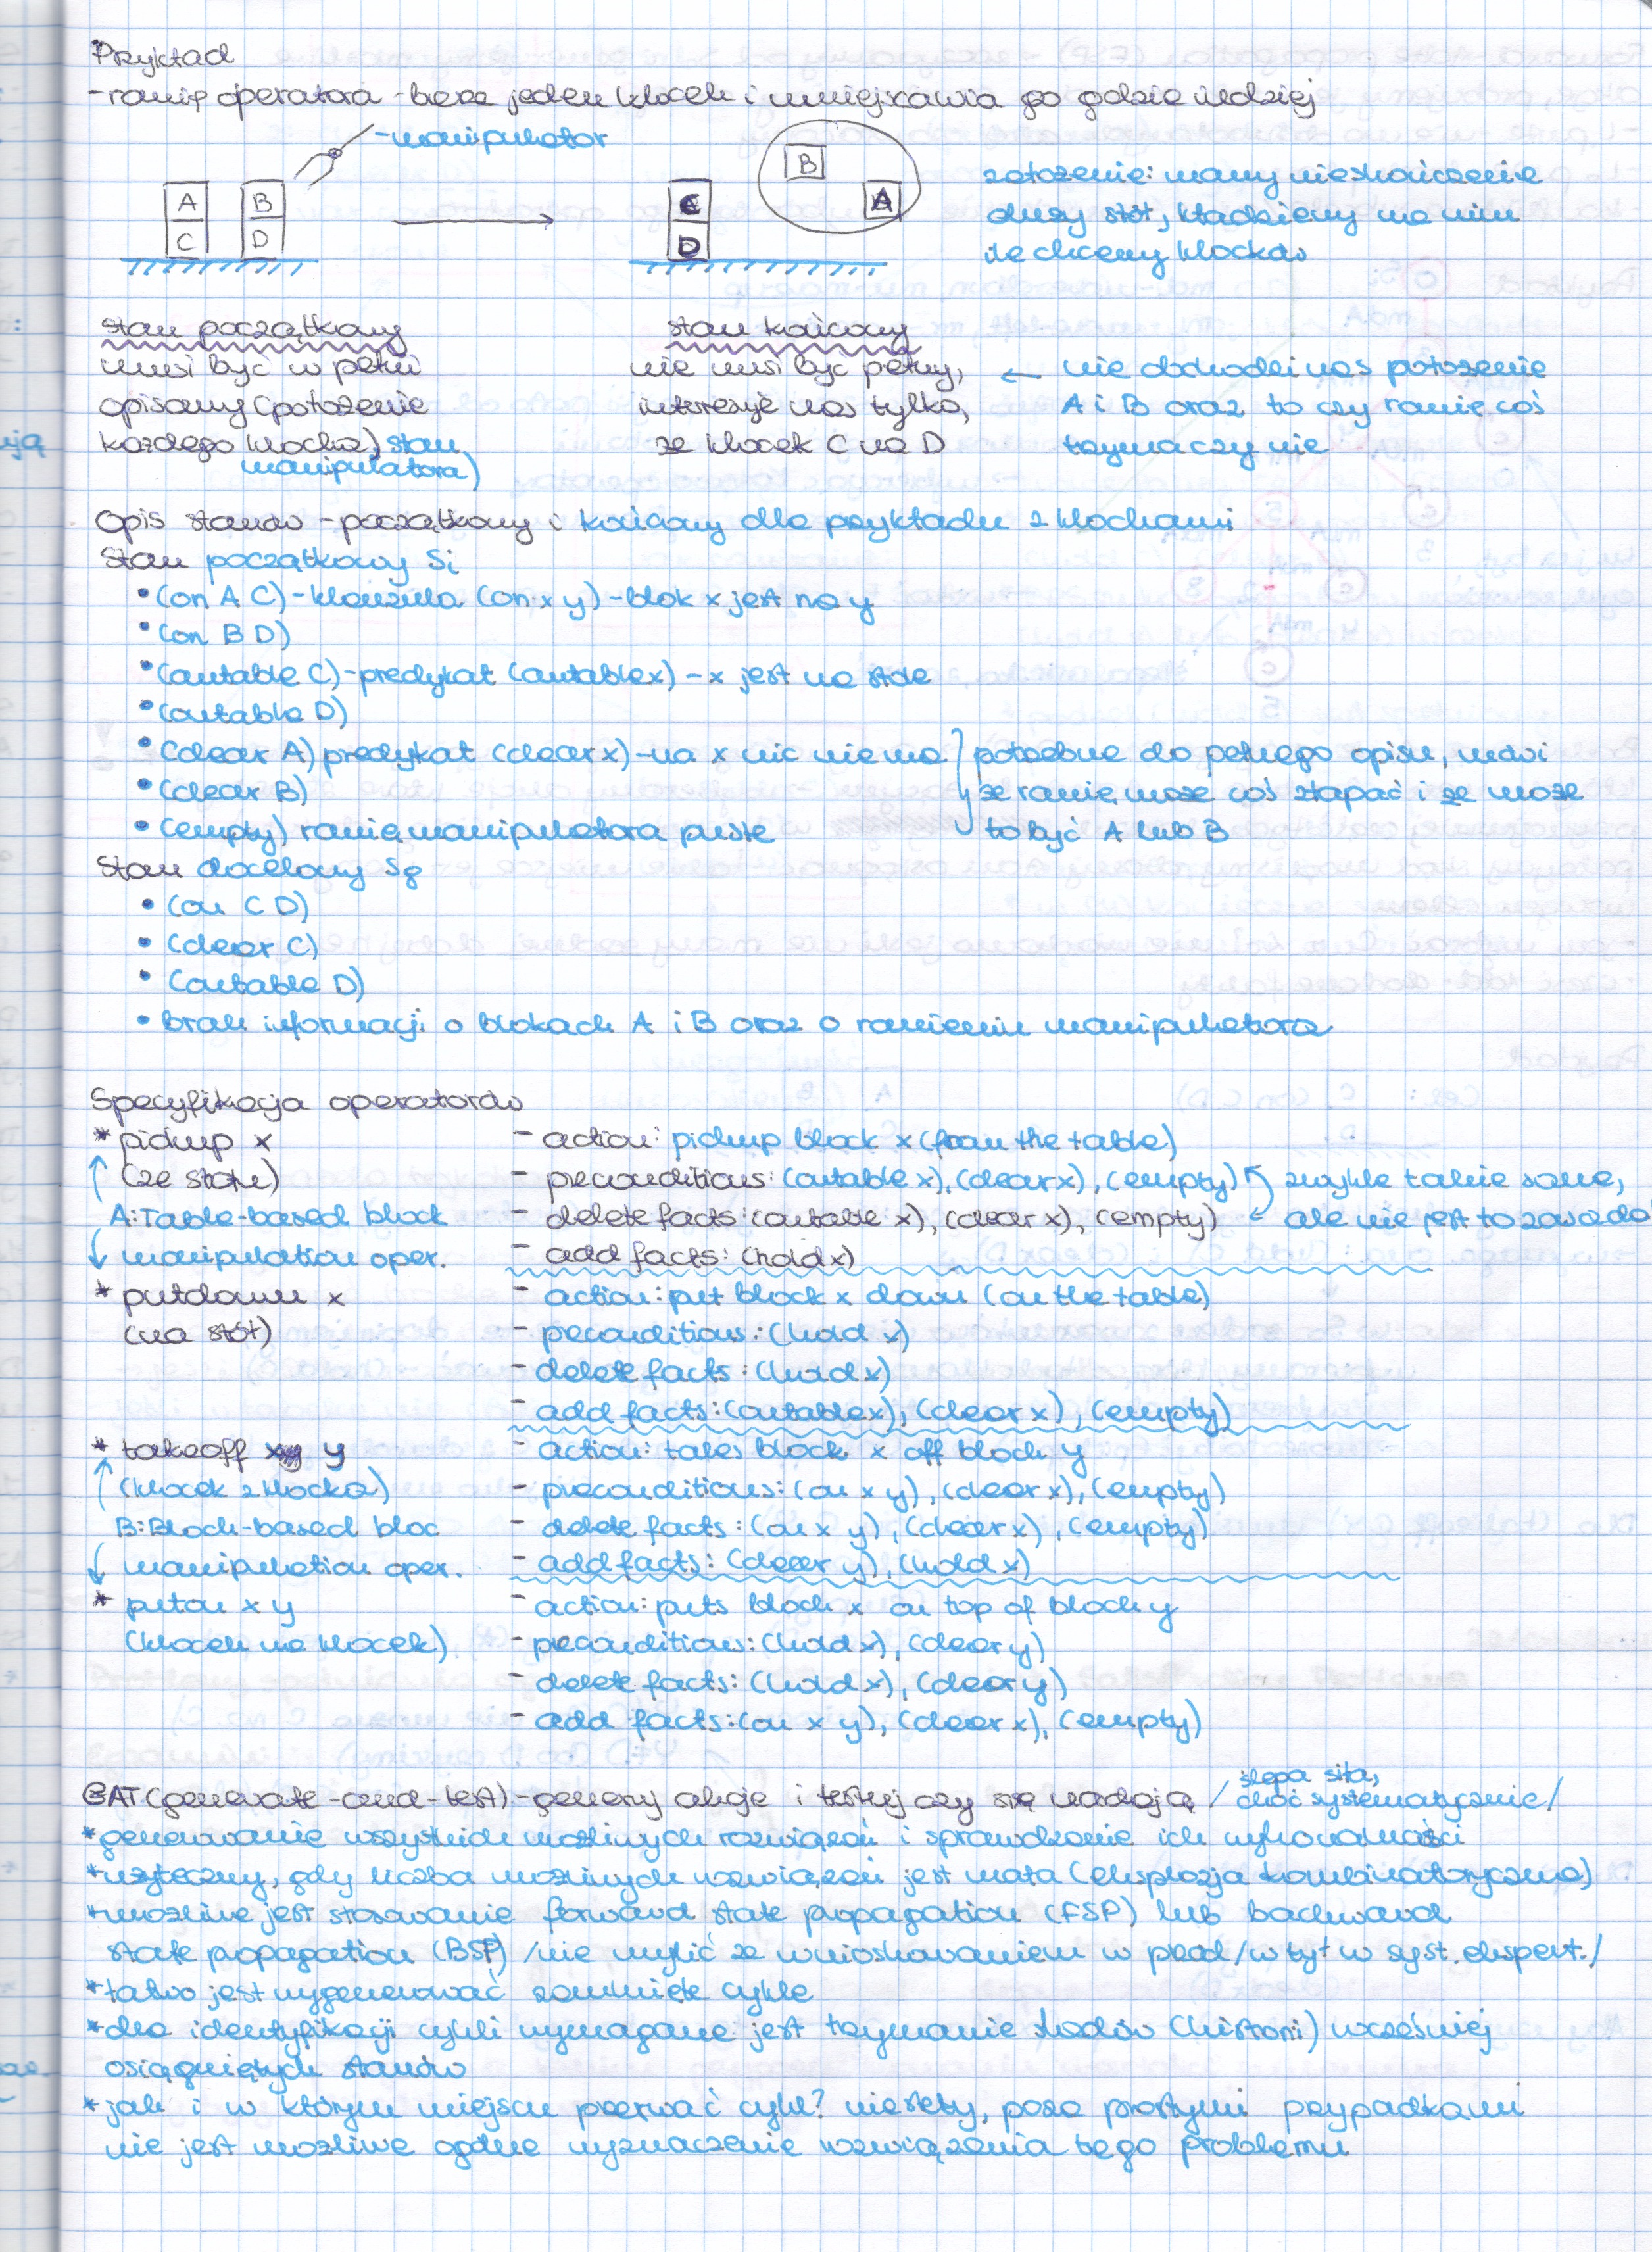 Przykład
- ramię operatora - bierze jeden klocek i umiejscawia go gdzie indziej
- manipulator
A
C
B
D
C
D
B
A
założenie: mamy nieskończenie
duży stół, kładziemy na nim
ile chcemy klocków
stan początkowy
musi być w pełni
opisany (położenie
każdego klocka, stan
manipulatora)
stan końcowy
nie musi być pełny,
interesuje nas tylko,
że klocek C na D
← nie obchodzi nas położenie
A i B oraz to czy ramię coś
trzyma czy nie
Opis stanów - początkowy i końcowy dla przykładu z klockami
Stan początkowy Si
• (on A C) - klauzula (on x y) - blok x jest na y
• (on B D)
• (ontable C) - predykat (ontable x) - x jest na stole
• (ontable D)
• (clear A) predykat (clear x) - na x nic nie ma
• (clear B)
• (empty) ramię manipulatora puste
potrzebne do pełnego opisu, mówi
że ramię może coś złapać i że może
to być A lub B
Stan docelowy Sg
• (on C D)
• (clear C)
• (ontable D)
• brak informacji o blokach A i B oraz o ramieniu manipulatora
Specyfikacja operatorów
* pickup x
(ze stołu)
- action: pickup block x (from the table)
- preconditions: (ontable x), (clear x), (empty)
- delete facts: (ontable x), (clear x), (empty)
- add facts: (hold x)
zwykle takie same,
ale nie jest to zasada
A: Table-based block
manipulation oper.
* putdown x
(na stół)
- action: put block x down (on the table)
- preconditions: (hold x)
- delete facts: (hold x)
- add facts: (ontable x), (clear x), (empty)
* takeoff x y
(klocek z klocka)
- action: takes block x off block y
- preconditions: (on x y), (clear x), (empty)
- delete facts: (on x y), (clear x), (empty)
- add facts: (clear y), (hold x)
B: Block-based bloc
manipulation oper.
* puton x y
(klocek na klocek)
- action: puts block x on top of block y
- preconditions: (hold x), (clear y)
- delete facts: (hold x), (clear y)
- add facts: (on x y), (clear x), (empty)
GAT (generate-and-test) - generuj akcje i testuj czy się nadają / ślepa siła,
choć systematycznie /
* generowanie wszystkich możliwych rozwiązań i sprawdzanie ich wykonalności
* użyteczny, gdy liczba możliwych rozwiązań jest mała (eksplozja kombinatoryczna)
* możliwe jest stosowanie forward state propagation (FSP) lub backward
state propagation (BSP) /nie mylić ze wnioskowaniem w przód/w tył w syst. ekspert./
* łatwo jest wygenerować zamknięte cykle
* dla identyfikacji cykli wymagane jest trzymanie śladów (historii) wcześniej
osiągniętych stanów
* jak i w którym miejscu przerwać cykl? niestety, poza prostymi przypadkami
nie jest możliwe ogólne wyznaczenie rozwiązania tego problemu